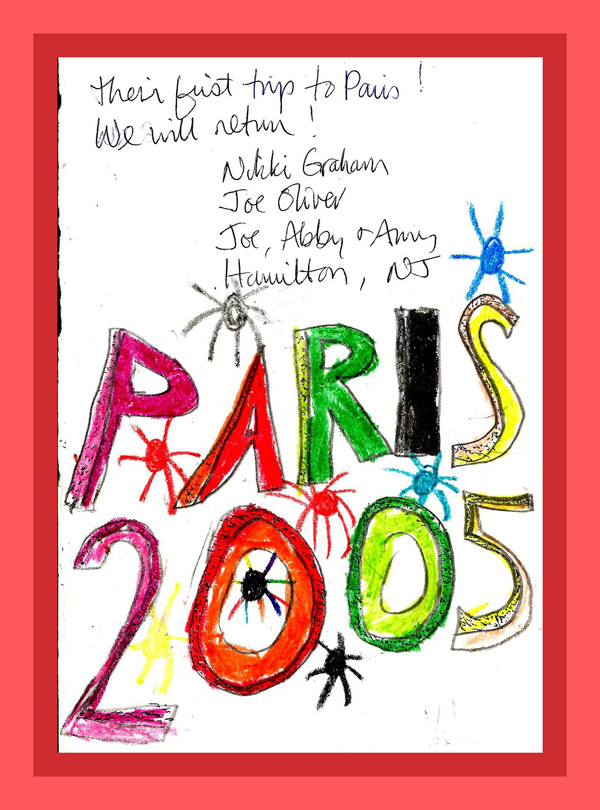 Their first trip to Paris !
We will return !
Nikki Graham
Joe Oliver
Joe, Abby & Amy
Hamilton, NJ
PARIS
2005